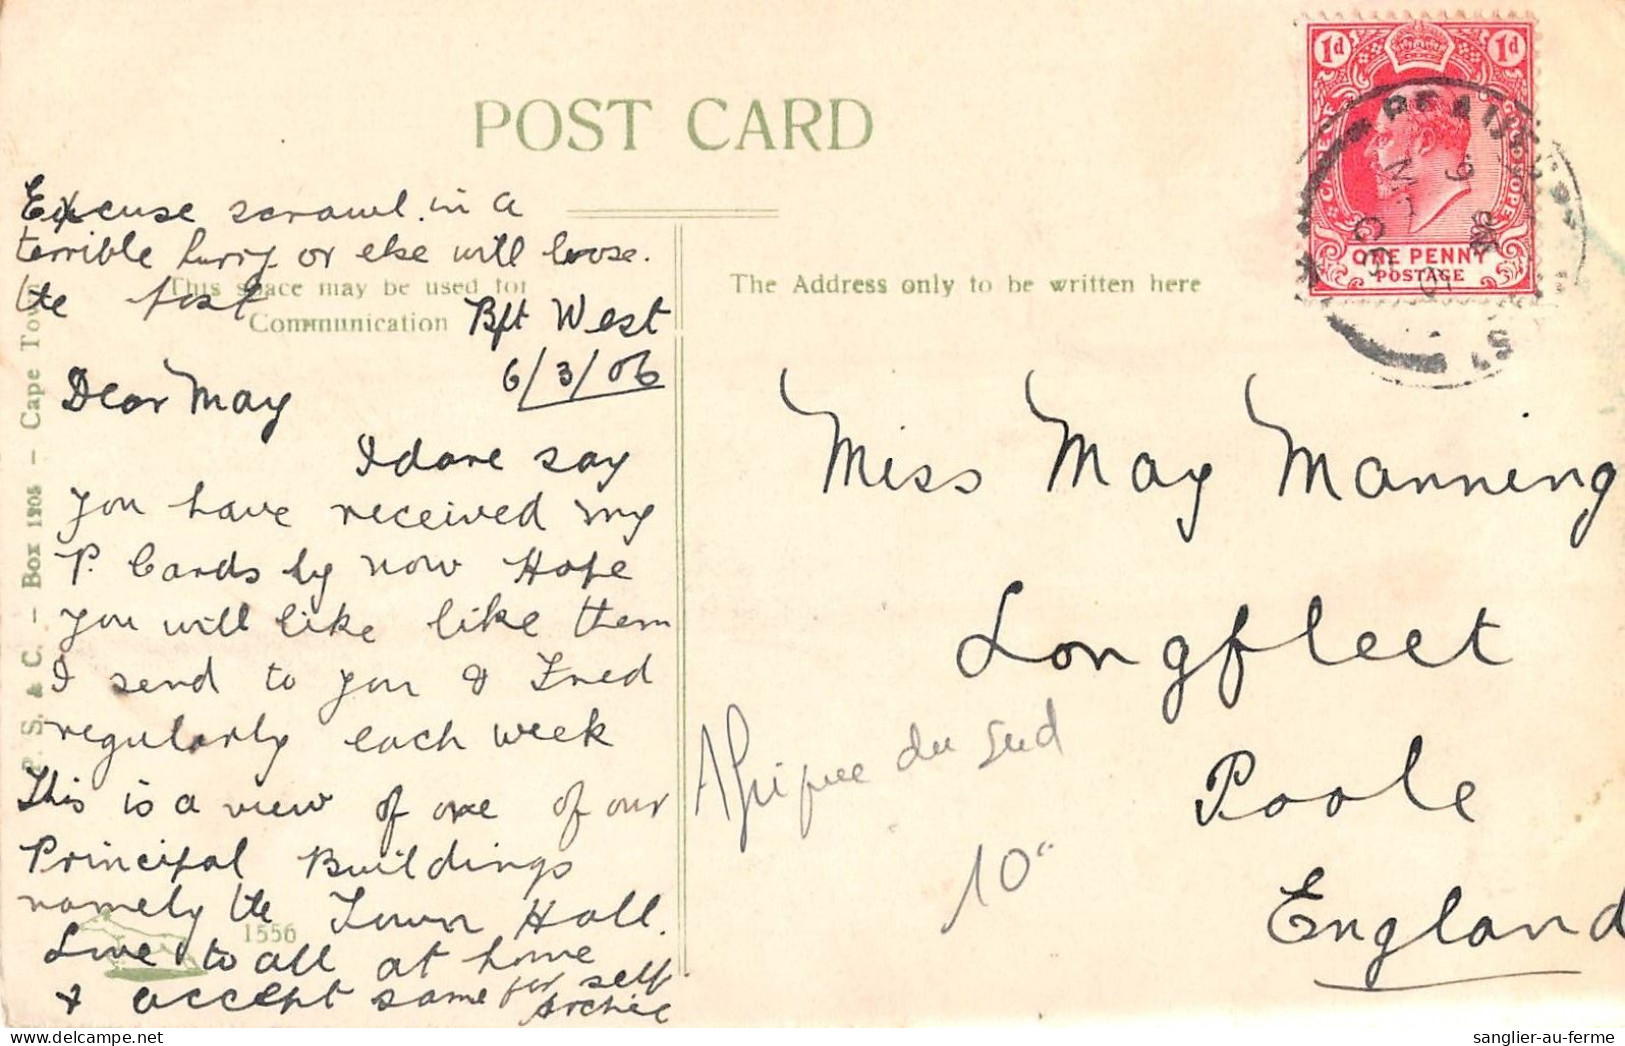 POST CARD
Excuse scrawl in a
terrible hurry or else will loose
the post
This space may be used for
Communication
The Address only to be written here
Bft West
6/3/06
Dear May
I dare say
you have received my
P. Cards by now Hope
you will like like them
I send to you & Fred
regularly each week
This is a view of one of our
Principal Buildings
namely the Town Hall.
Love to all at home
& accept same for self
Archie
1556
P. S. & C. - Box 1205 - Cape Town
1d 1d
CAPE OF GOOD HOPE
ONE PENNY
POSTAGE
Miss May Manning
Longfleet
Poole
England
Afrique du Sud
10
sanglier-au-ferme